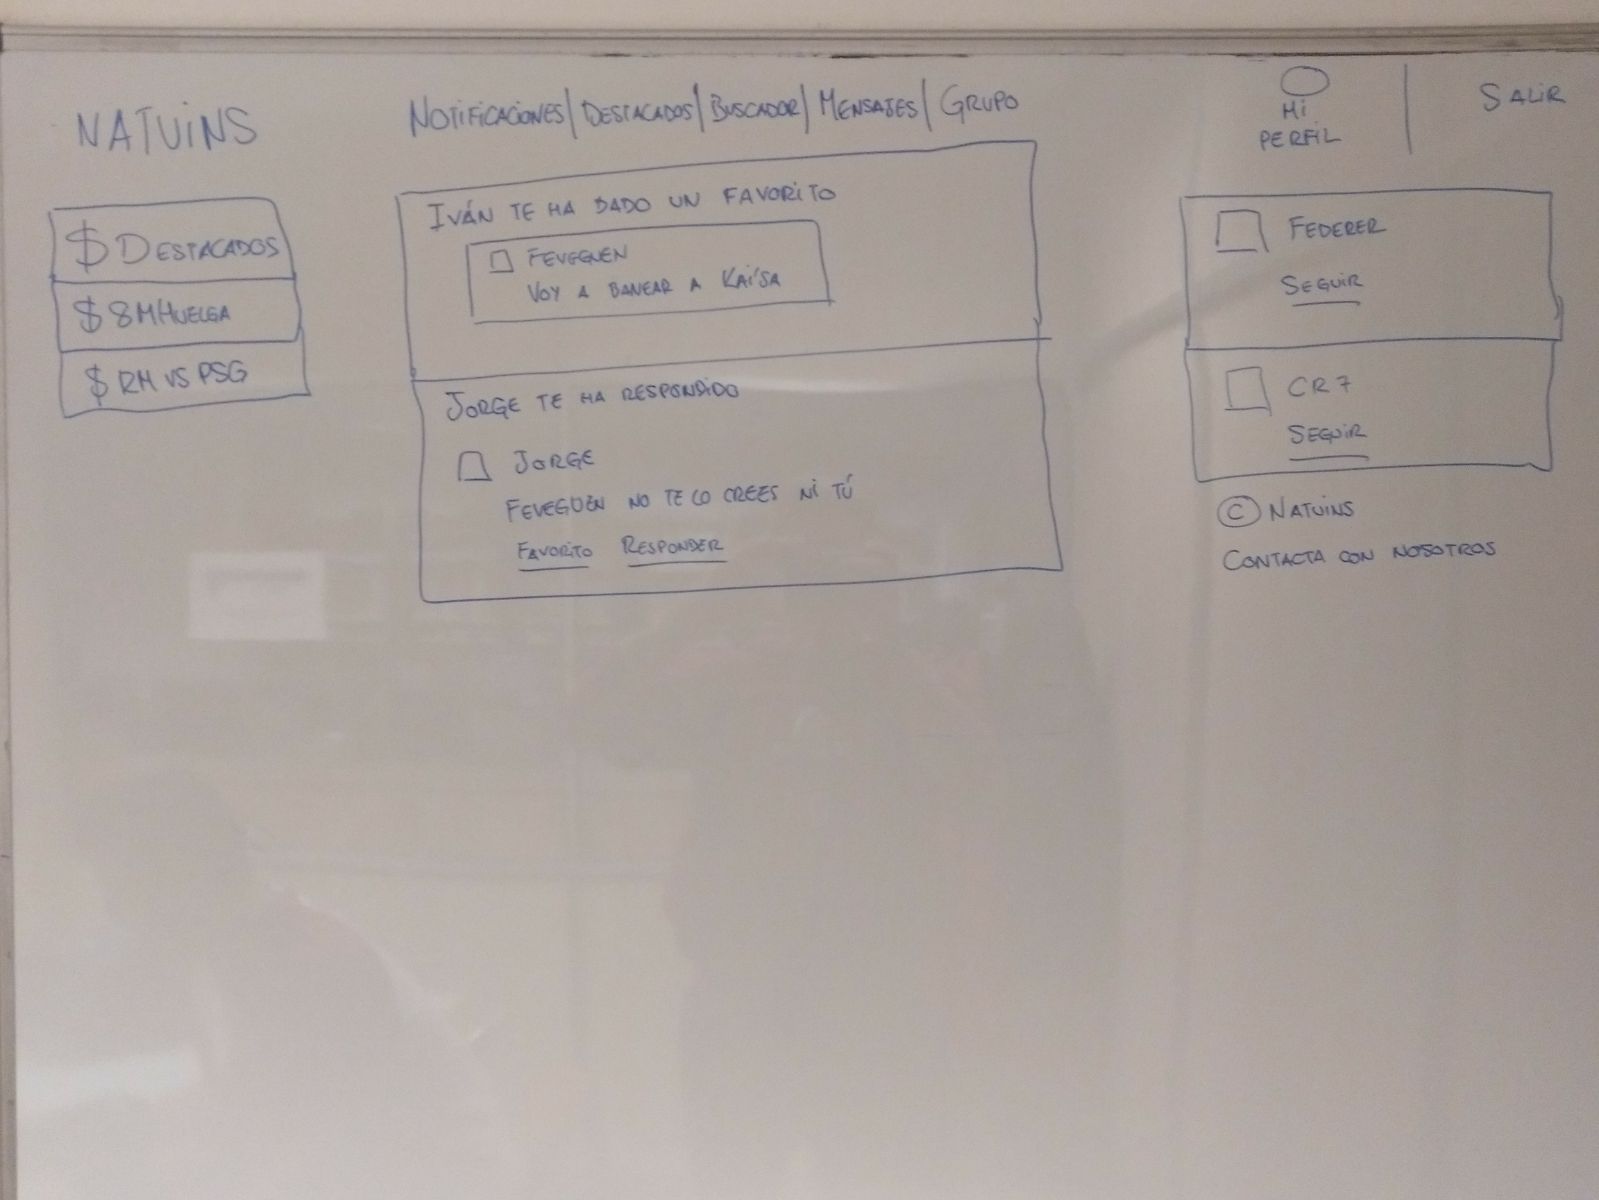 NATUINS
NOTIFICACIONES | DESTACADOS | BUSCADOR | MENSAJES | GRUPO
MI
PERFIL
SALIR
$ DESTACADOS
$ 8MHUELGA
$ RM VS PSG
IVÁN TE HA DADO UN FAVORITO
FEVEGUEN
VOY A BANEAR A KAI'SA
JORGE TE HA RESPONDIDO
JORGE
FEVEGUEN NO TE LO CREES NI TÚ
FAVORITO RESPONDER
FEDERER
SEGUIR
CR7
SEGUIR
© NATUINS
CONTACTA CON NOSOTROS